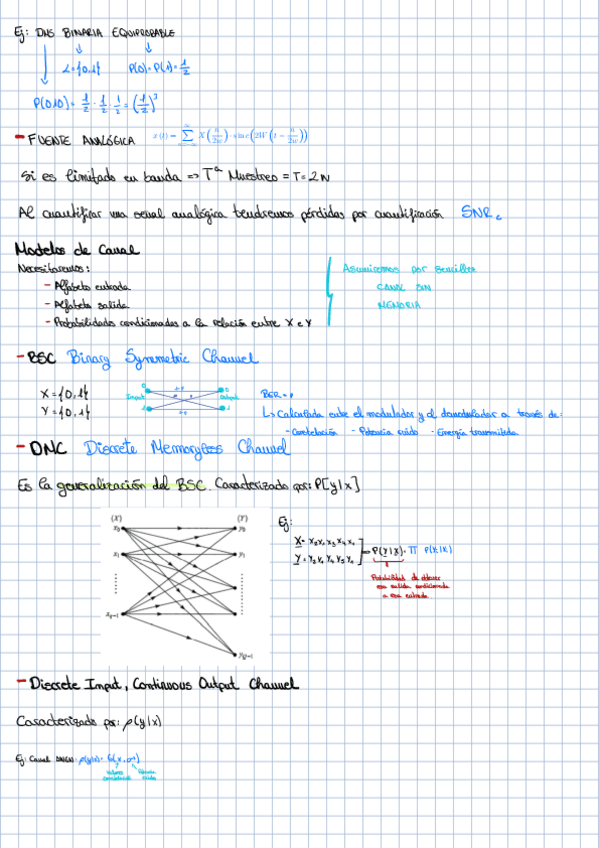 Ej: DMS BINARIA EQUIPROBABLE
L={0,1} P(0)=P(1)=1/2
P(010)= 1/2 · 1/2 · 1/2 = (1/2)³
- FUENTE ANALÓGICA x(t) = ∑ X(n/2w) · sinc(2W(t − n/2w))
Si es limitado en banda => Tª Muestreo = T=2W
Al cuantificar una señal analógica tendremos pérdidas por cuantificación SNR
Modelos de Canal
Necesitaremos:
- Alfabeto entrada
- Alfabeto salida
- Probabilidades condicionadas a la relación entre X e Y
Asumiremos por sencillez
CANAL SIN
MEMORIA
- BSC Binary Symmetric Channel
X={0,1}
Y={0,1}
Input Output
BER = p
↳ Calculada entre el modulador y el demodulador a través de:
- Constelación - Potencia ruido - Energía transmitida
- DMC Discrete Memoryless Channel
Es la generalización del BSC. Caracterizado por: P[y|x]
(X) (Y)
x₀ y₀
x₁ y₁
x_{q−1}
y_{Q−1}
Ej:
P(Y|X) = ∏ P(Yi|Xi)
Probabilidad de obtener
esa salida condicionada
a esa entrada
- Discrete Input, Continuous Output Channel
Caracterizado por: p(y|x)
Ej: Canal